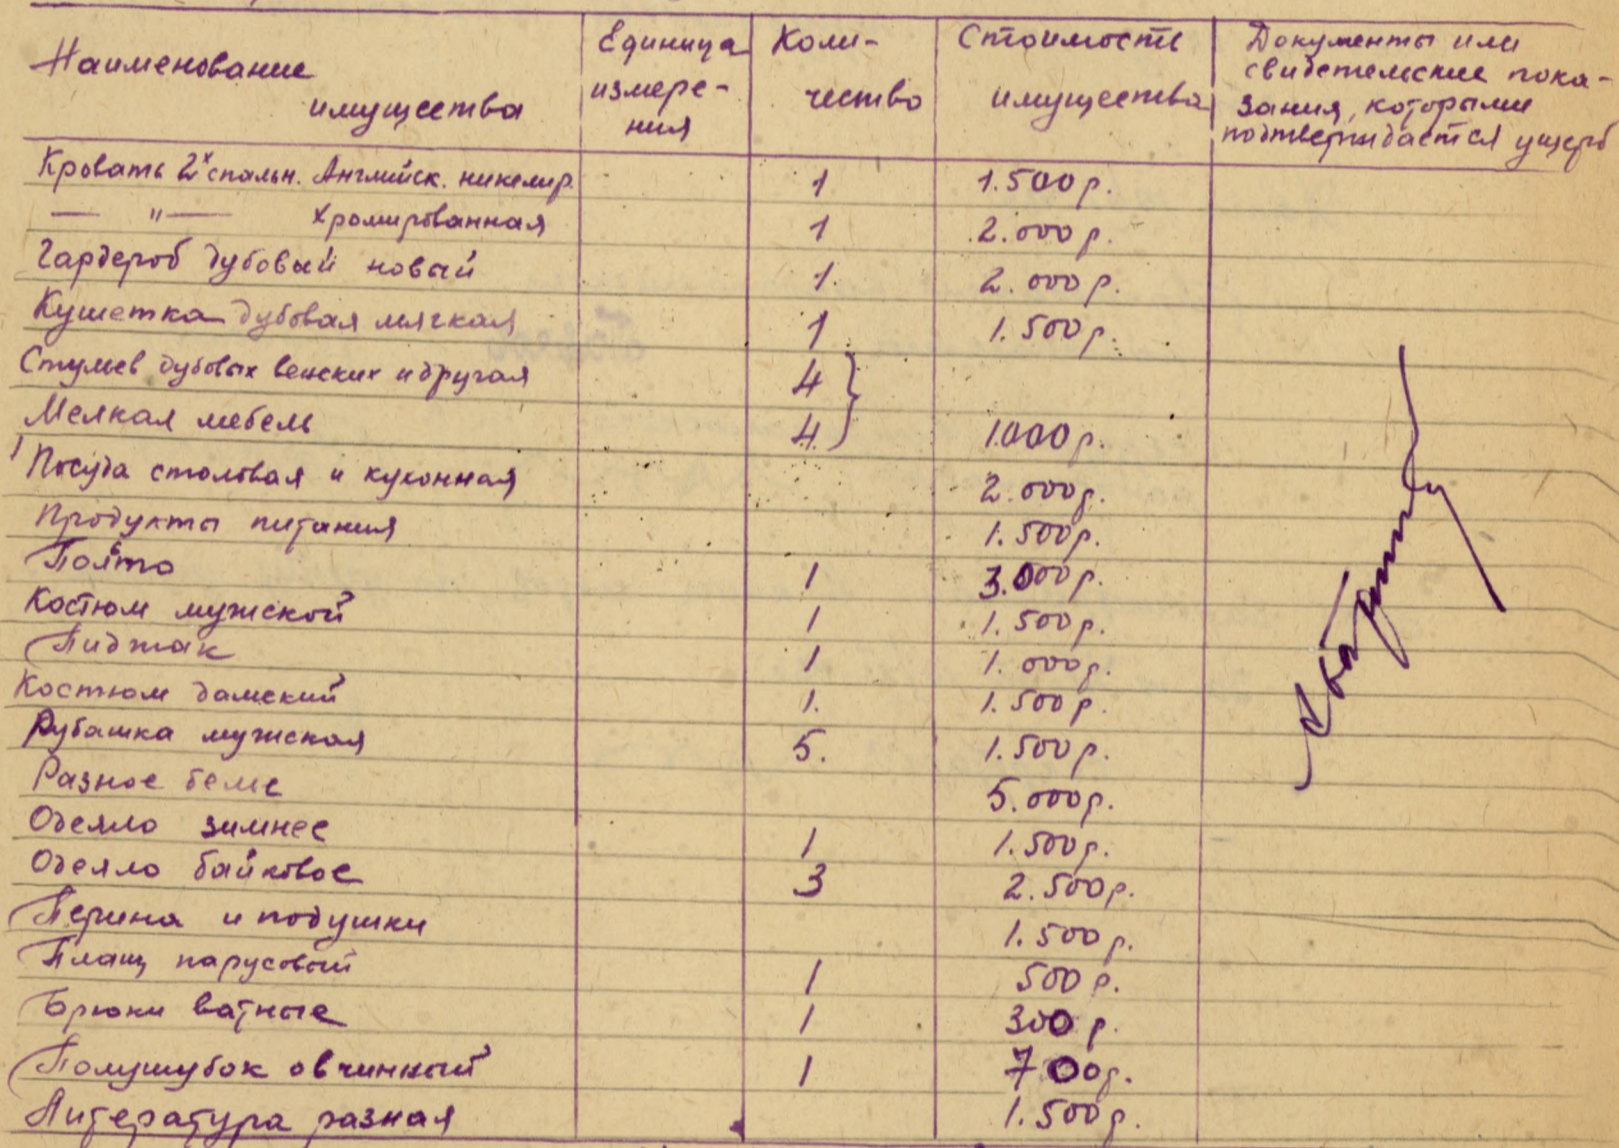 Наименование имущества | Единица измере-ния | Коли-чество | Стоимость имущества | Документы или свидетельские пока-зания, которыми подтверждается ущерб
Кровать 2х спальн. Английск. никелир. | | 1 | 1.500 р.
— " — хромированная | | 1 | 2.000 р.
Гардероб дубовый новый | | 1. | 2.000 р.
Кушетка дубовая мягкая | | 1 | 1.500 р.
Стульев дубовых венских и другая | | 4 }
Мелкая мебель | | 4 } | 1000 р.
Посуда столовая и кухонная | | | 2.000 р.
Продукты питания | | | 1.500 р.
Пальто | | 1 | 3.000 р.
Костюм мужской | | 1 | 1.500 р.
Пиджак | | 1 | 1.000 р.
Костюм дамский | | 1. | 1.500 р.
Рубашка мужская | | 5. | 1.500 р.
Разное белье | | | 5.000 р.
Одеяло зимнее | | 1 | 1.500 р.
Одеяло байковое | | 3 | 2.500 р.
Перина и подушки | | | 1.500 р.
Плащ парусовый | | 1 | 500 р.
Брюки ватные | | 1 | 300 р.
Полушубок овчинный | | 1 | 700 р.
Литература разная | | | 1.500 р.